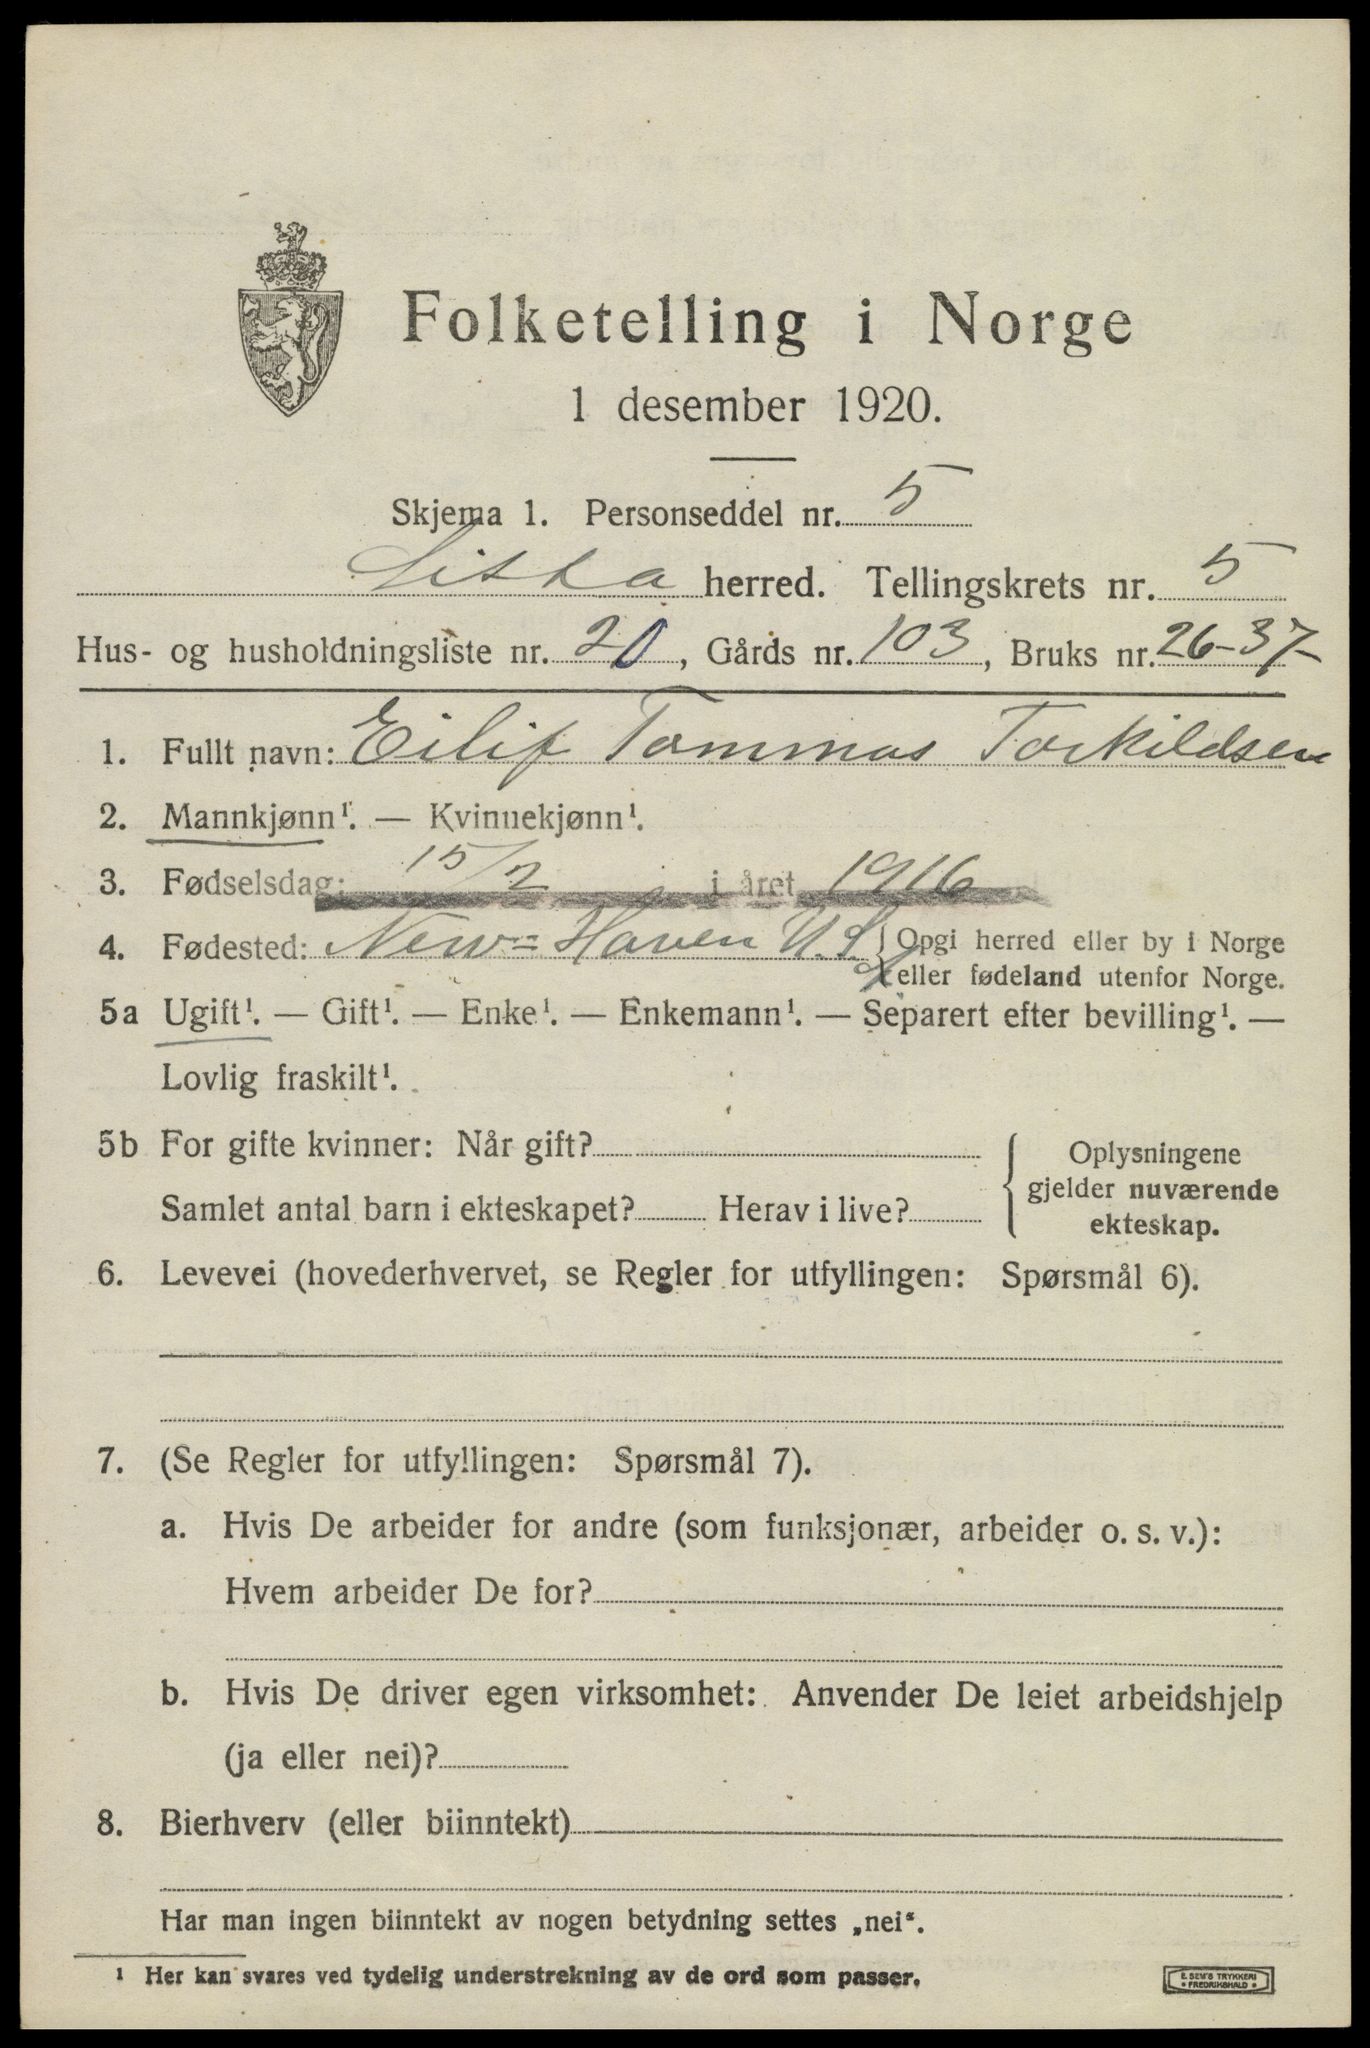 Folketelling i Norge
1 desember 1920.
Skjema 1. Personseddel nr. 5
Lista herred. Tellingskrets nr. 5
Hus- og husholdningsliste nr. 20, Gårds nr. 103, Bruks nr. 26-37-
1. Fullt navn: Eilif Tommas Torkildsen
2. Mannkjønn¹. — Kvinnekjønn¹.
3. Fødselsdag: 15/2 i året 1916
4. Fødested: New=Haven U.S. {Opgi herred eller by i Norge
eller fødeland utenfor Norge.
5a Ugift¹. — Gift¹. — Enke¹. — Enkemann¹. — Separert efter bevilling¹. —
Lovlig fraskilt¹.
5b For gifte kvinner: Når gift?
Samlet antal barn i ekteskapet? Herav i live?
{Oplysningene
gjelder nuværende
ekteskap.
6. Levevei (hovederhvervet, se Regler for utfyllingen: Spørsmål 6).
7. (Se Regler for utfyllingen: Spørsmål 7).
a. Hvis De arbeider for andre (som funksjonær, arbeider o. s. v.):
Hvem arbeider De for?
b. Hvis De driver egen virksomhet: Anvender De leiet arbeidshjelp
(ja eller nei)?
8. Bierhverv (eller biinntekt)
Har man ingen biinntekt av nogen betydning settes „nei“.
¹ Her kan svares ved tydelig understrekning av de ord som passer.
E. SEM'S TRYKKERI
• FREDRIKSHALD •